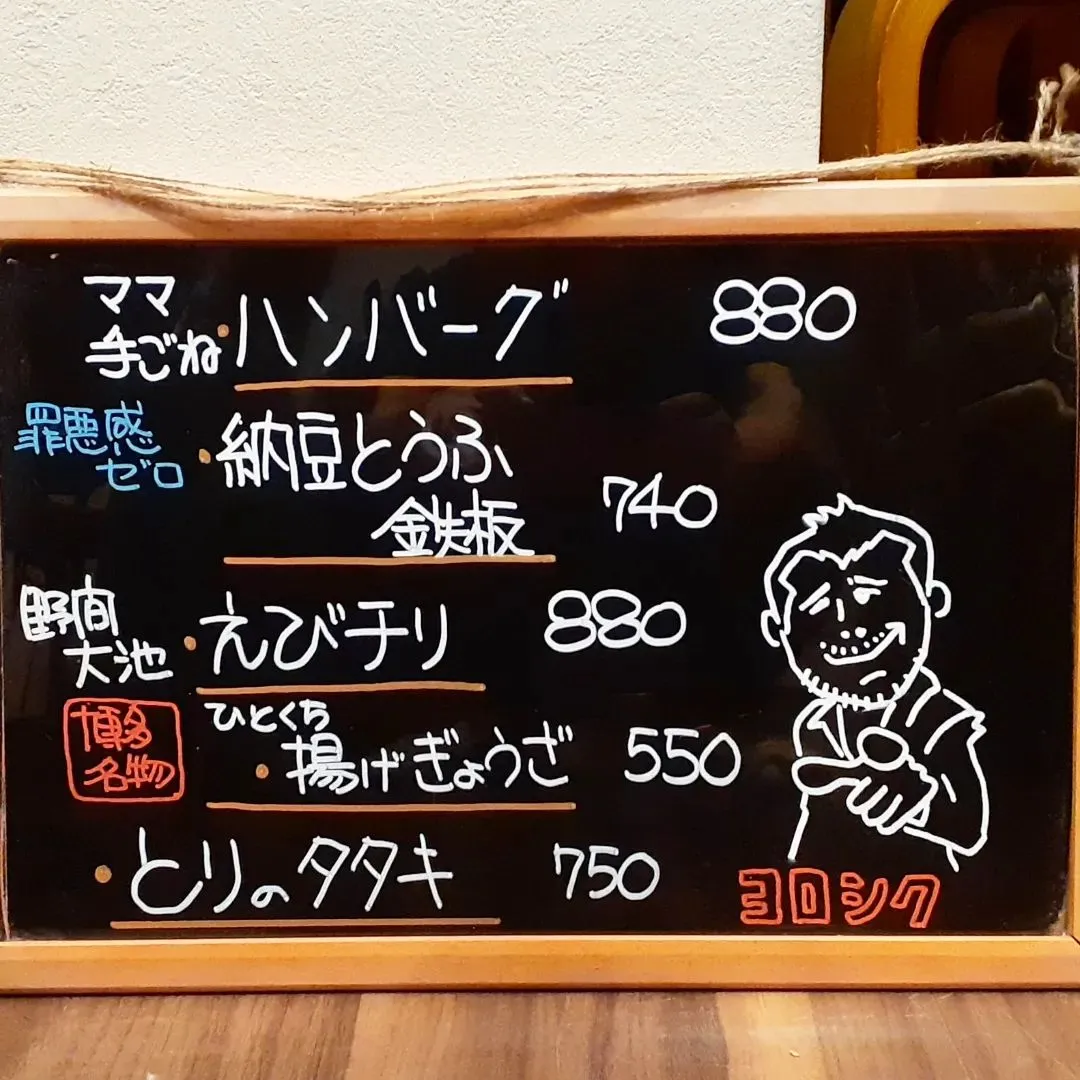 ママ
手ごね・ハンバーグ 880
罪悪感
ゼロ
・納豆とうふ
鉄板 740
野間
大池
・えびチリ 880
博多
名物
ひとくち
・揚げぎょうざ 550
・とりのタタキ 750
ヨロシク